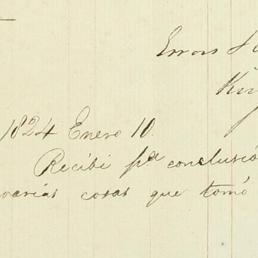 Errors
1824 Enero 10.
Recibí pª conclusió
varias cosas que tomó